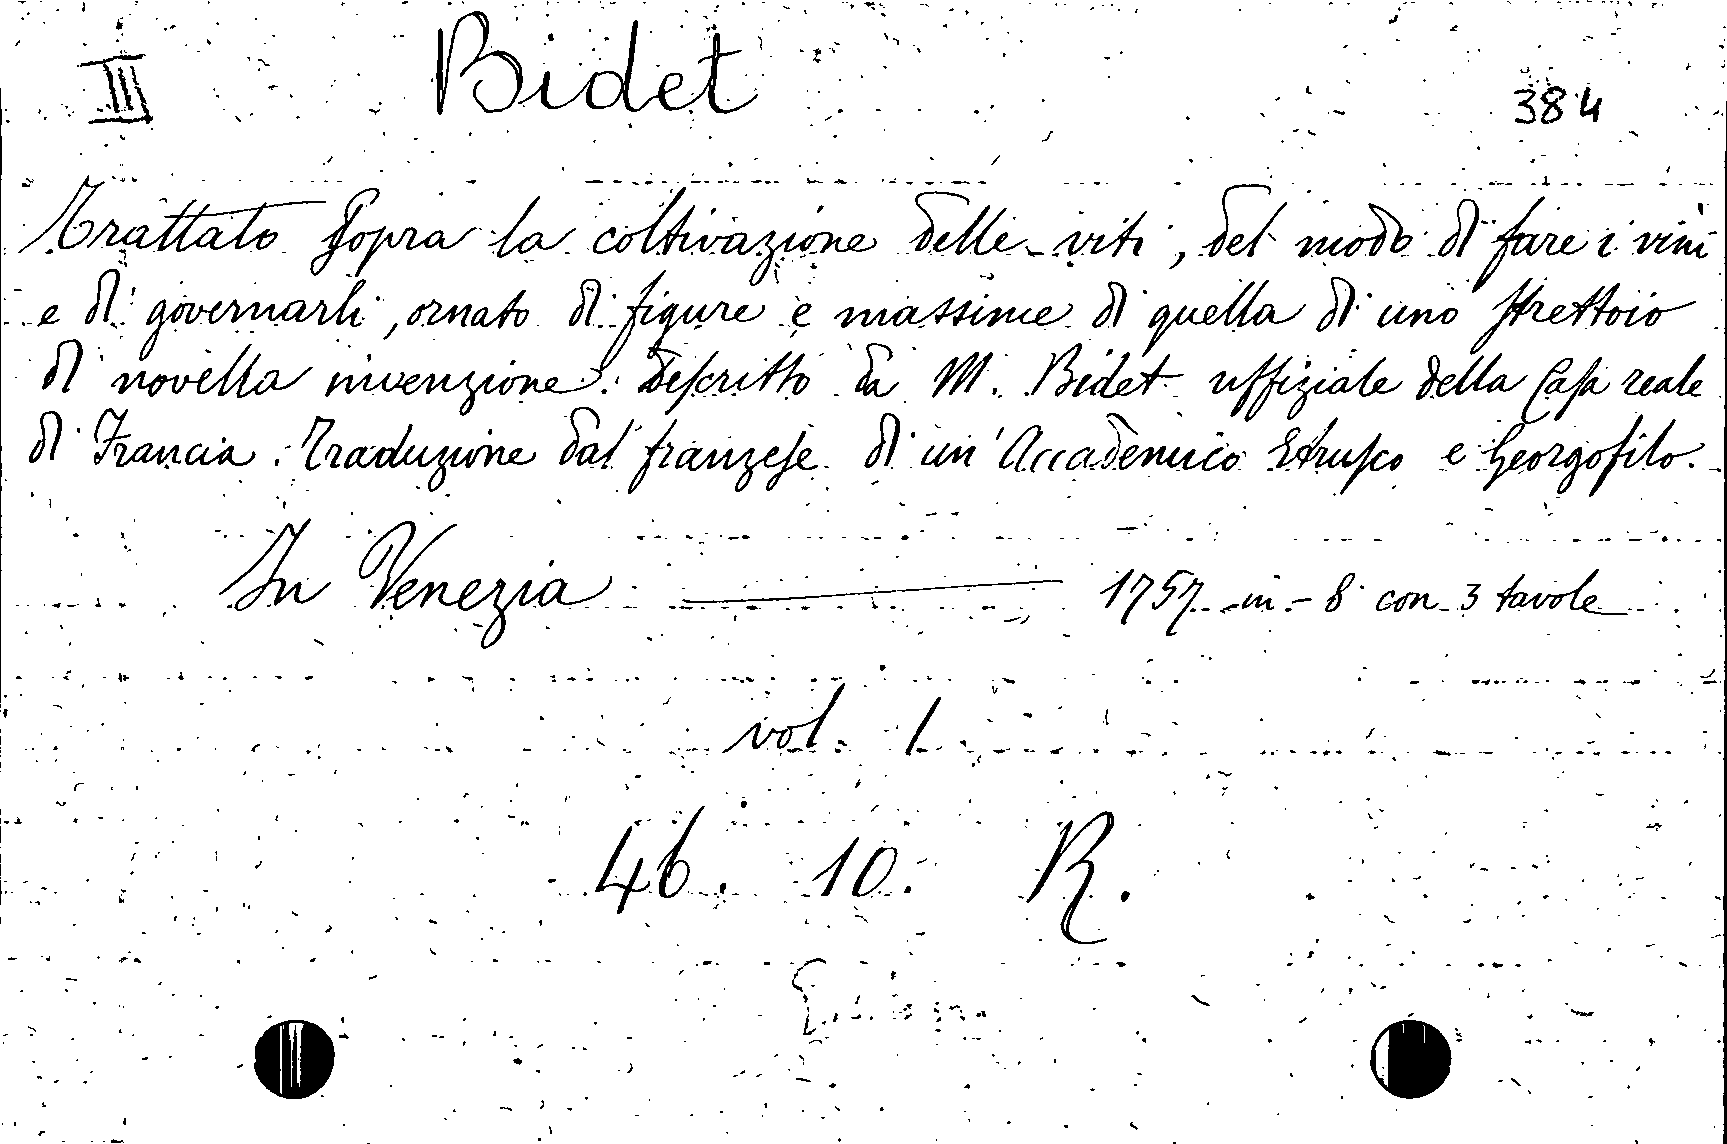 III Bidet 384
Trattato sopra la coltivazione delle viti, del modo di fare i vini
e di governarli, ornato di figure e massime di quella di uno strettoio
di novella invenzione. descritto da M. Bidet uffiziale della Casa reale
di Francia. Traduzione dal franzese di un' Accademico Etrusco e Georgofilo.
In Venezia — 1757 in-8 con 3 tavole
vol. 1
46. 10. R.